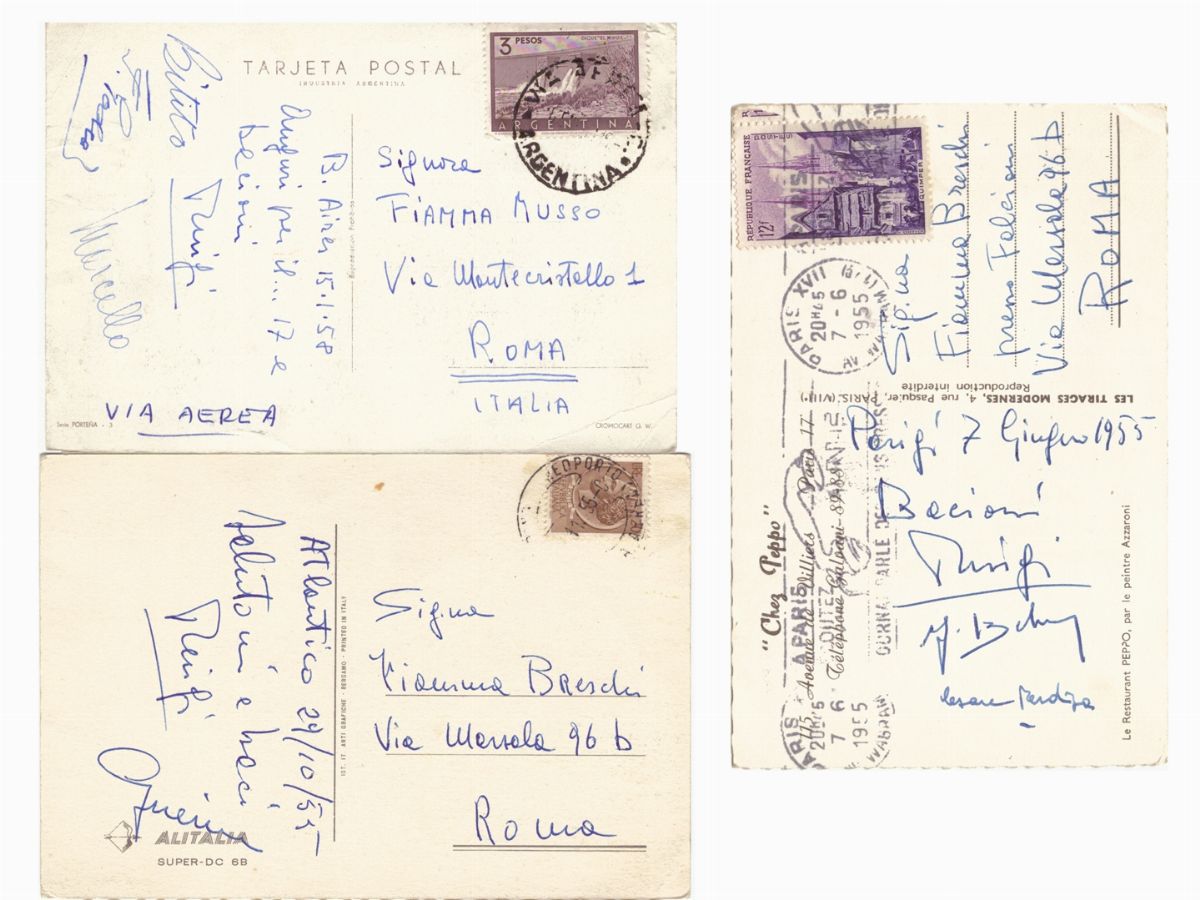 TARJETA POSTAL
INDUSTRIA ARGENTINA
3 PESOS
ARGENTINA
ARGENTINA
B. Aires 15.1.58
Auguri per il... 17 e
bacioni
Marcello
Signora
FIAMMA MUSSO
Via Montecristallo 1
ROMA
ITALIA
VIA AEREA
Serie PORTEÑA - 3
CROMOCART G. W.
Atlantico 29/10/55
salutoni e baci
Sig.na
Fiamma Breschi
Via Marsala 96 b
Roma
IST. IT. ARTI GRAFICHE - BERGAMO - PRINTED IN ITALY
ALITALIA
SUPER-DC 6B
RÉPUBLIQUE FRANÇAISE
12f
QUIMPER
PARIS XVII
20H45
7-6
1955
AV. WAGRAM (17e)
Sig.na
Fiamma Breschi
presso Falcioni
Via Marsala 96 b
ROMA
LES TIRAGES MODERNES, 4, rue Pasquier, PARIS (VIIIe)
Reproduction interdite
Parigi 7 Giugno 1955
Bacioni
"Chez Peppo"
115, Avenue de Villiers - Paris 17
Téléphone Galvani 89-83
A PARIS
PARIS
20H45
7 6
1955
WAGRAM
Le Restaurant PEPPO, par le peintre Azzaroni